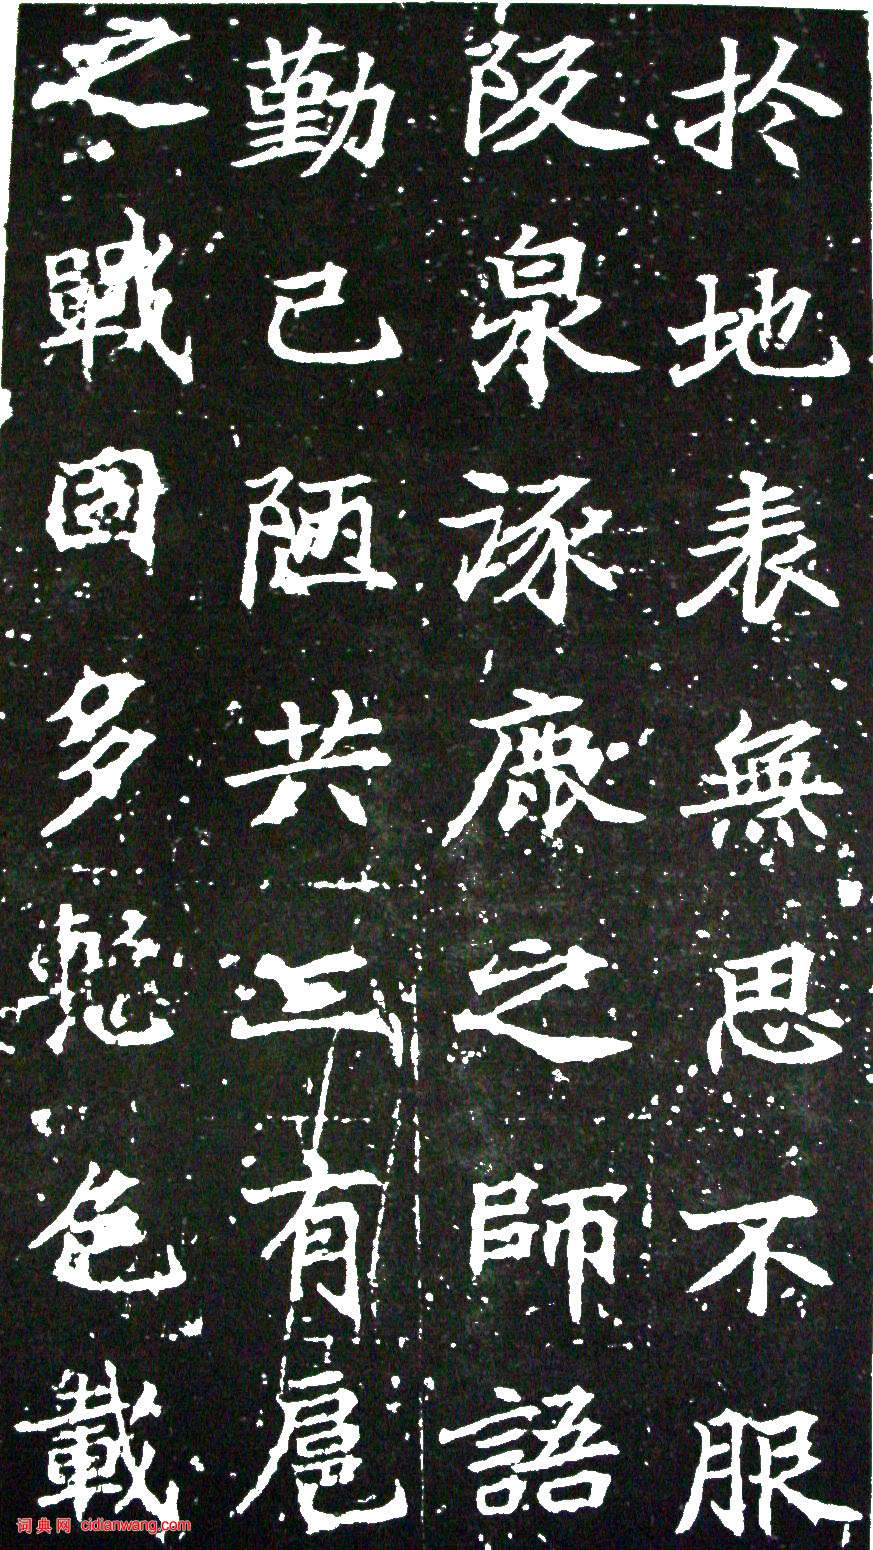 扵地表無思不服
阪泉涿鹿之師語
勤已陋共工有扈
之戰國多慙色載
词典网 cidianwang.com